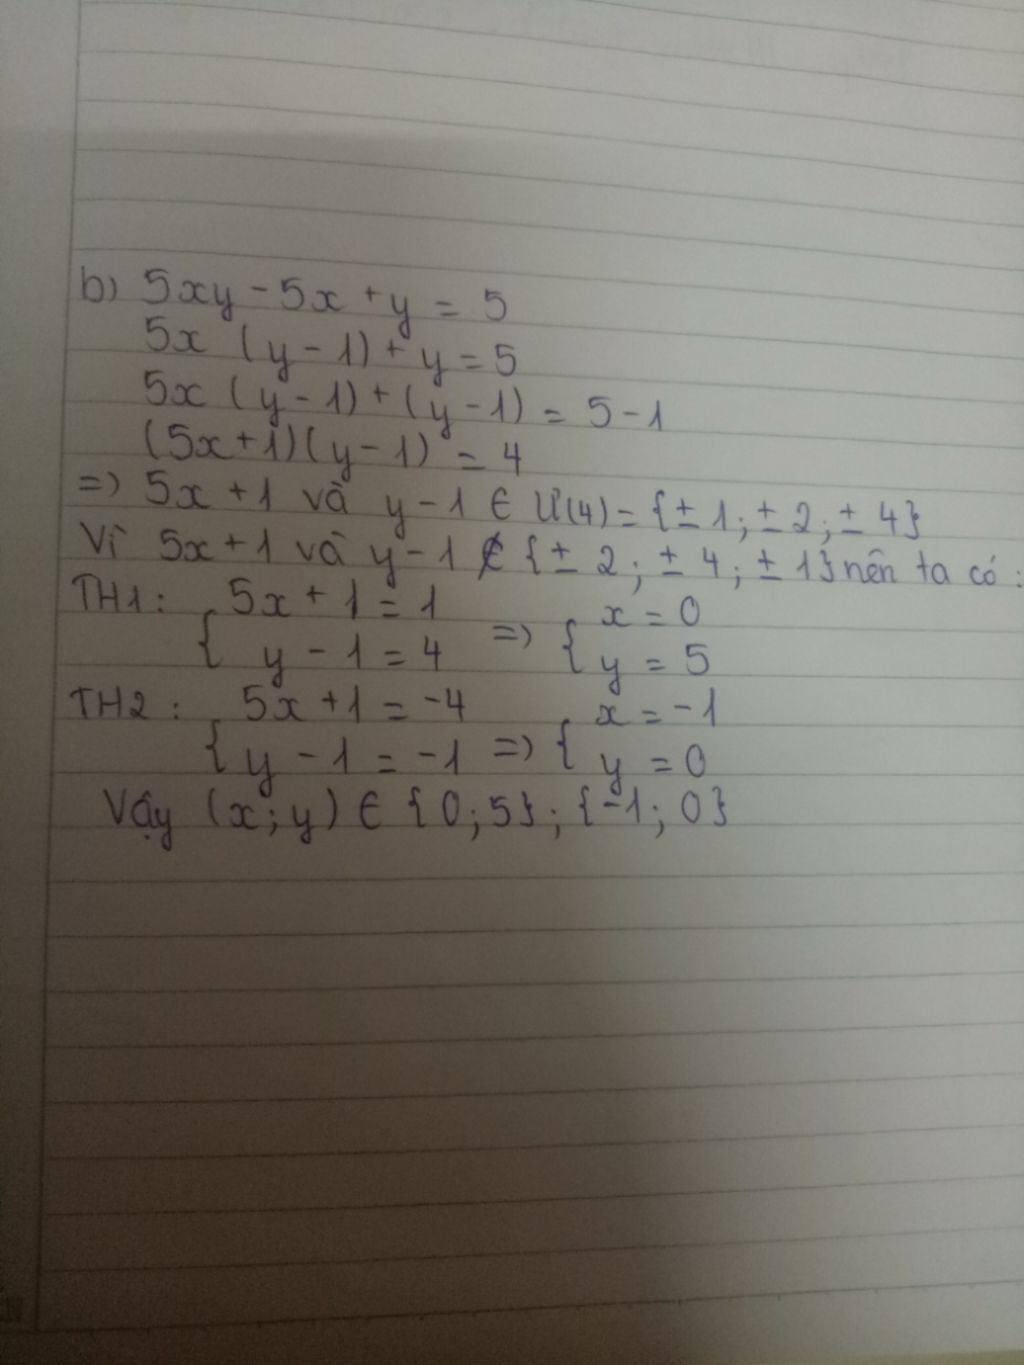 b) 5xy - 5x + y = 5
5x (y - 1) + y = 5
5x (y - 1) + (y - 1) = 5 - 1
(5x + 1)(y - 1) = 4
=> 5x + 1 và y - 1 ∈ Ư(4) = {± 1; ± 2; ± 4}
Vì 5x + 1 và y - 1 ∉ {± 2; ± 4; ± 1} nên ta có:
TH1: { 5x + 1 = 1 => { x = 0
y - 1 = 4 y = 5
TH2: { 5x + 1 = -4 => { x = -1
y - 1 = -1 y = 0
Vậy (x; y) ∈ {0; 5}; {-1; 0}